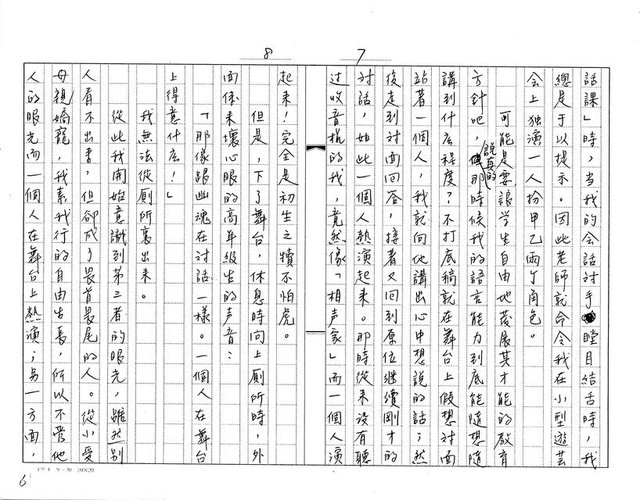 8
7
話課」時，當我的會話对手瞠目結舌時，我
總是予以提示。因此老師就命令我在小型遊芸
会上独演一人扮甲乙兩个角色。
可能是要讓学生自由地發展其才能的教育
方針吧，說真的那時候我的語言能力到底能隨想隨
講到什広程度？不打底稿就在舞台上假想对面
站著一個人，我就向他講出心中想說的話；然
後走到对面回答，接著又回到原位継續剛才的
对話，如此一個人熱演起来。那時從来没有聽
过收音机的我，竟然像「相声家」而一個人演
起来！完全是初生之犢不怕虎。
但是，下了舞台，休息時向上厠所時，外
面傳来懐心眼的高年級生的声音：
「那像跟幽魂在対話一樣。一個人在舞台
上得意什広！」
我無法從厠所裏出来。
從此我開始意識到第三者的眼光，雖然別
人看不出来，但卻成了畏首畏尾的人。從小受
母親嬌寵，我素我行的自由生長，所以不管他
人的眼光而一個人在舞台上熱演；另一方面，
20X20
6